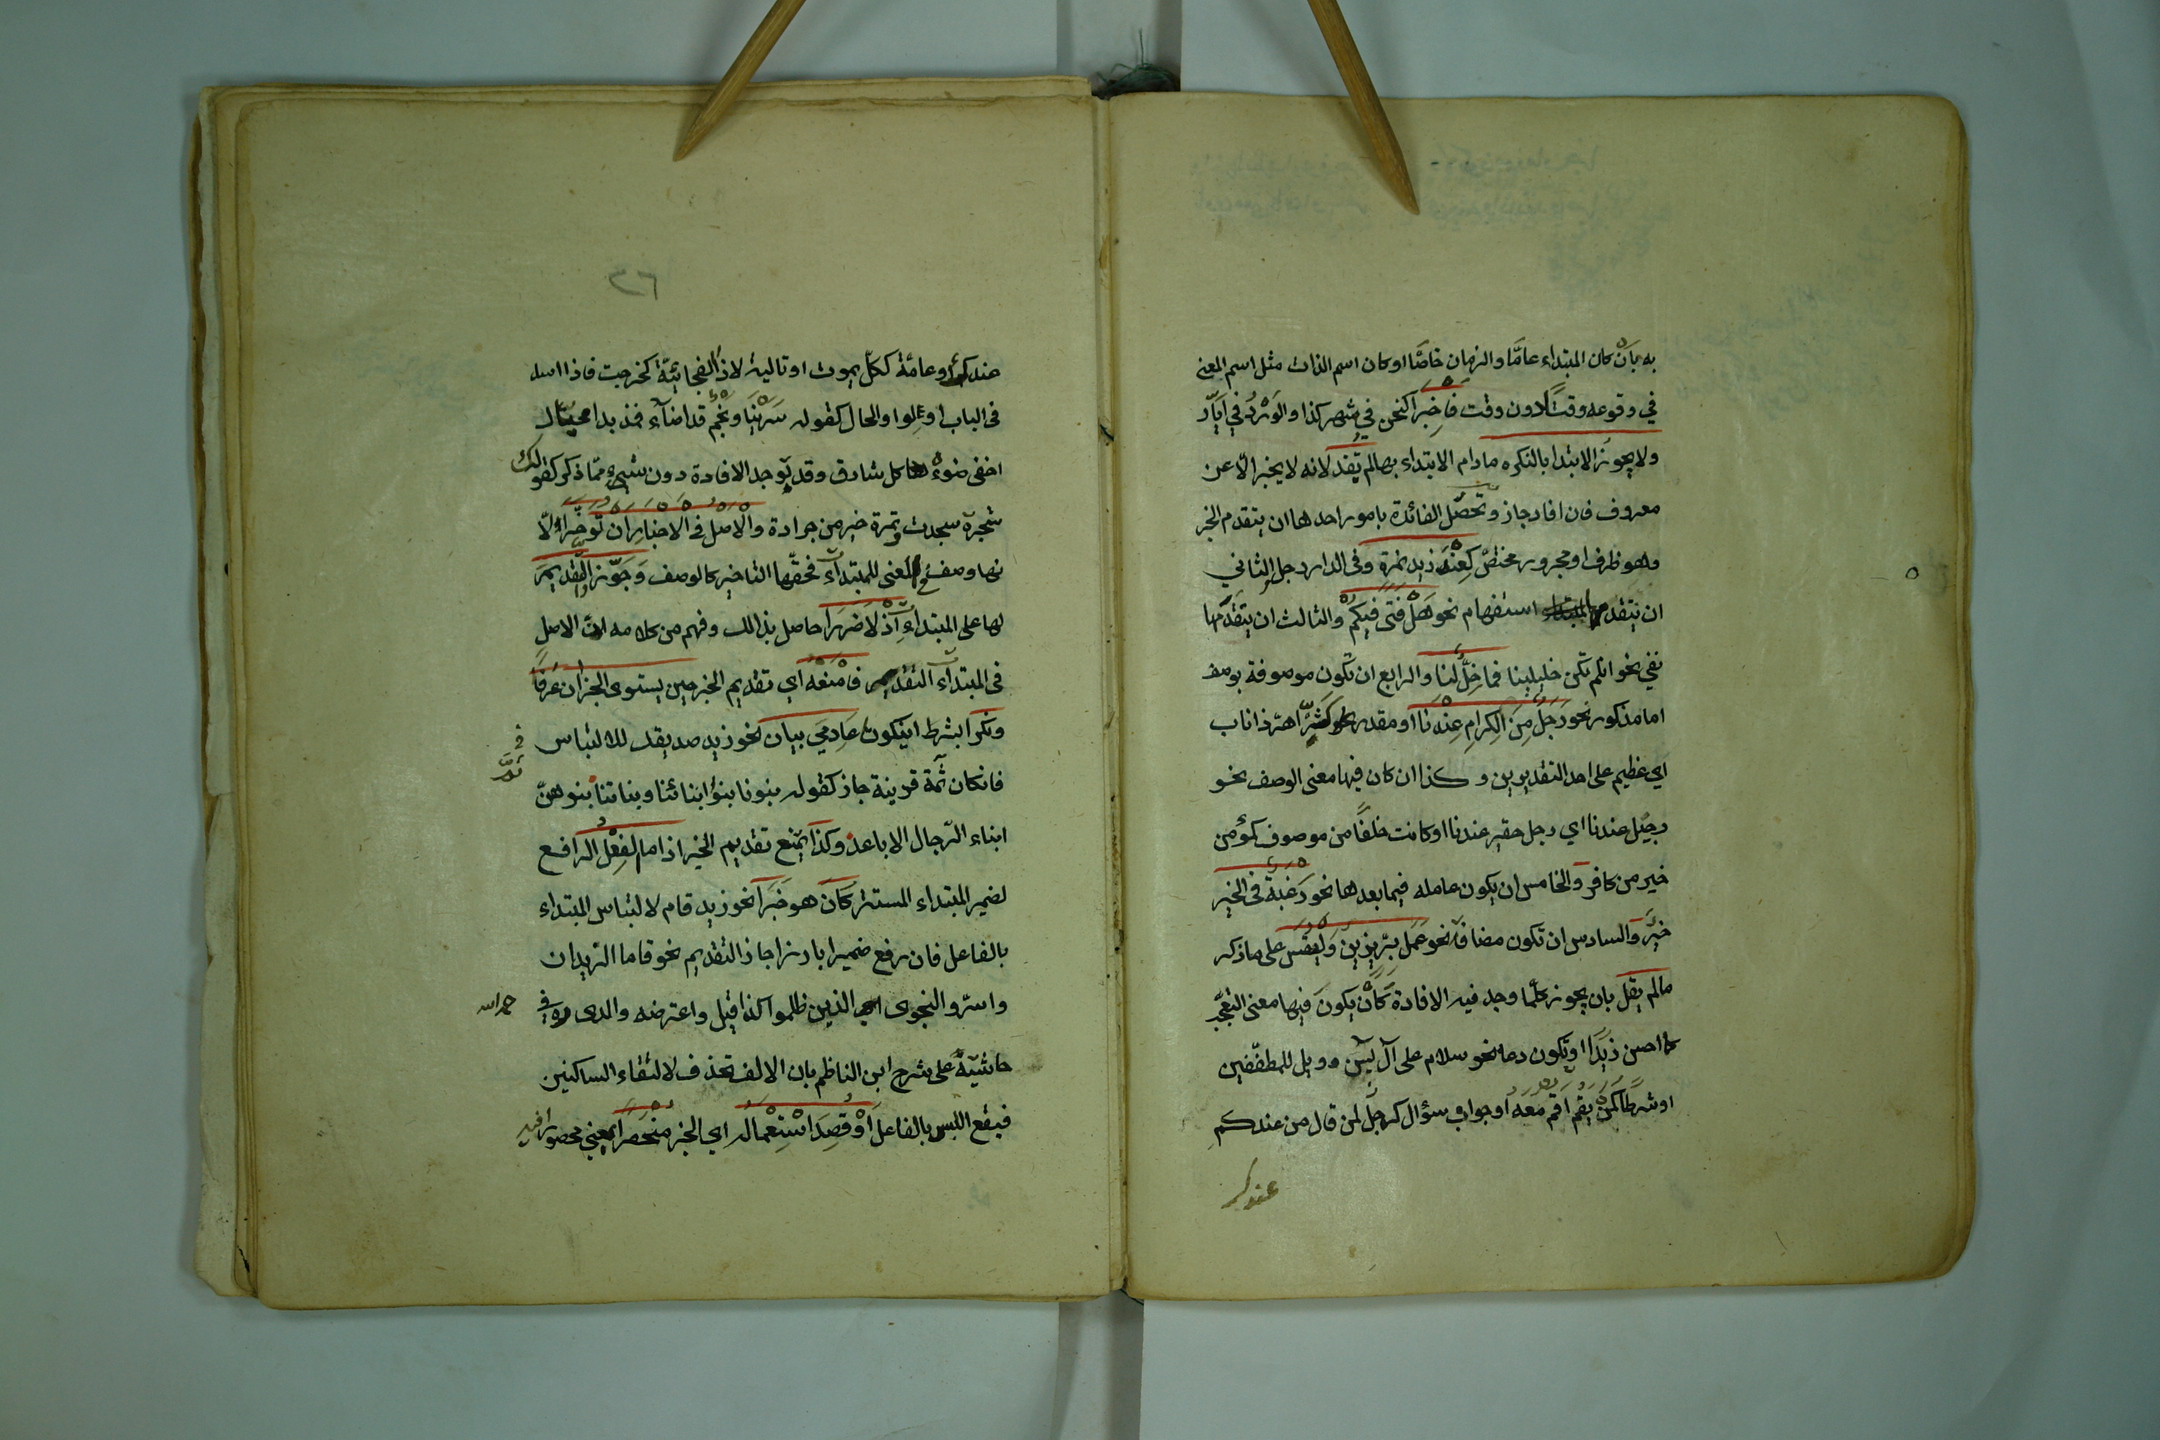 به بان كان المبتداء عامّا والزمان خاصّا او كان اسم الذات مثل اسم المعنى
في وقوعه وقتًا دون وقت فَاخبرا كنحن في شهر كذا والوَرْدُ في ايّار
ولا يجوزُ الابتدا بالنكره مادام الابتداء بها لم تُفِد لانه لا يخبر الّا عن
معروف فان افاد جاز وتحصّل الفائدة بامور احدها ان يتقدم الخبر
وهو ظرف او مجرور مختصّ كَعِنْدَ زيد نمرة وفى الدار رجل الثاني
ان يتقدمها استفهام نحو هَلْ فَتًى فيكُمْ والثالث ان يتقدّمها
نفي نحو ان لم تكن خليلينا فما خِلٌّ لنا والرابع ان تكون موصوفة بوصف
اما مذكور نحو رَجُلٌ مِنَ الكِرامِ عِنْدَنا او مقدر نحو شَرٌّ اهرّ ذا ناب
اي عظيم على احد التقديرين وكذا ان كان فيها معنى الوصف نحو
رجيل عندنا اي رجل حقير عندنا او كانت خلفًا من موصوف كمؤمن
خير من كافر والخامس ان يكون عامله فيما بعدها نحو رَغبةٌ فى الخير
خَيْرٌ والسادس ان تكون مضافة نحو عَمَل بِرّ يزين وَليقس على ما ذكر
مالم يقل بان يجوز كلّما وجد فيه الافادة كَأنْ يكونَ فيها معنى التعجّب
كما احسن زيدًا او تكون دعا نحو سلام على آل يسَ وويل للمطفّفين
او شرطًا كمن يقم اقم مَعَه او جواب سؤال كرجل لمن قال من عندكم
عندك
٣٦
عندك او عامّة ككلّ يموت او تالية لاذ الفجائيّة كخرجت فاذا اسد
فى الباب او لواو الحال كقوله سَرَيْنا ونجمٌ قد اضآء فمذ بدا محيّاك
اخفى ضوءُه كل شارق وقد توجد الافادة دون شيئٍ ممّا ذكر كقولك
شجرة سجدت وتمرة خير من جرادة والاصل فى الاخبار ان تُوخّرا لا
نها وصف فى المعنى للمبتدآء فحقّها التاخير كالوصف وَجَوّزوا التقديمَ
لها على المبتداءِ اِذْ لَا ضَرَرَا حاصل بذالك وفهم من كلامه انّ الاصل
فى المبتدآء التقديم فَامْنَعْه اي تقديم الخبر حين يستوى الجزان عُرفًا
ونُكرا بشرط ان يكون عادِمَي بيان نحو زيد صديقك للالتباس
فان كان ثمّة قرينة جاز كقوله بنونا بنو ابنائنا وبناتنا بنوهنّ
ابناء الرّجال الاباعد وكذا يمتنع تقديم الخبر اذا ما الفِعْلُ الرافع
لضمير المبتداء المستتر كَانَ هو خَبَرَا نحو زيد قام لالتباس المبتداء
بالفاعل فان رفع ضميرا بارزا جاز التقديم نحو قاما الزيدان
واسرّو النجوى الذين ظلموا كذا قيل واعترضه والدى فى
رحمه الله
حاشيّة على شرح ابن الناظم بان الالف تحذف لالتقاء الساكنين
فيقع اللبس بالفاعل اَوْ قُصِدَ اسْتِعْمالُه اي الخبر مُنْحَصِرًا يعني محصورا فيه